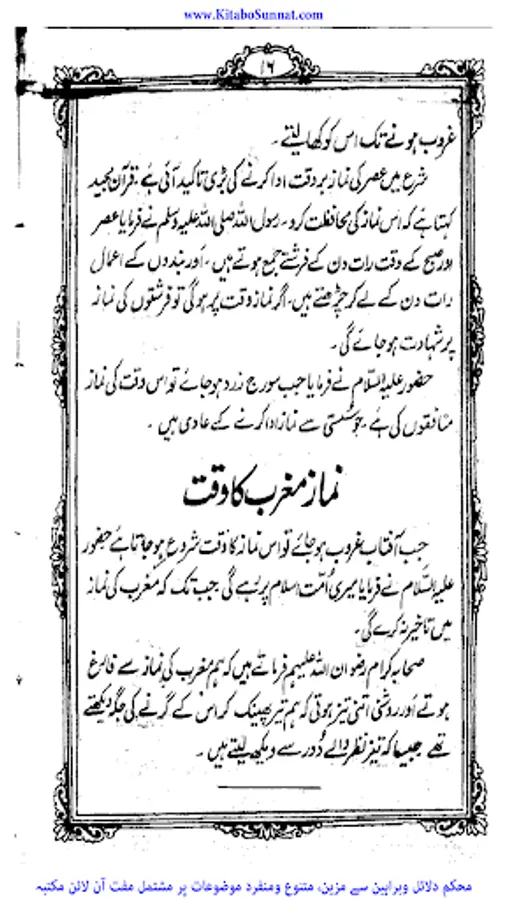 www.KitaboSunnat.com
١٦
غروب ہونے تک اس کو کھا لیتے۔
شرع میں عصر کی نماز بر وقت ادا کرنے کی بڑی تاکید آئی ہے۔ قرآن مجید
کہتا ہے کہ اس نماز کی محافظت کرو۔ رسول اللہ صلی اللہ علیہ وسلم نے فرمایا عصر
اور صبح کے وقت رات دن کے فرشتے جمع ہوتے ہیں۔ اور بندوں کے اعمال
رات دن کے لے کر چڑھتے ہیں۔ اگر نماز وقت پر ہوگی تو فرشتوں کی نماز
پر شہادت ہو جائے گی۔
حضور علیہ السلام نے فرمایا جب سورج زرد ہو جائے تو اس وقت کی نماز
منافقوں کی ہے۔ جو سستی سے نماز ادا کرنے کے عادی ہیں۔
نماز مغرب کا وقت
جب آفتاب غروب ہو جائے تو اس نماز کا وقت شروع ہو جاتا ہے حضور
علیہ السلام نے فرمایا میری اُمت اسلام پر رہے گی جب تک کہ مغرب کی نماز
میں تاخیر نہ کرے گی۔
صحابہ کرام رضوان اللہ علیہم فرماتے ہیں کہ ہم مغرب کی نماز سے فارغ
ہوتے اور روشنی اتنی تیز ہوتی کہ ہم تیر پھینک کر اس کے گرنے کی جگہ دیکھتے
تھے جیسا کہ تیز نظر والے دُور سے دیکھ لیتے ہیں۔
محکم دلائل وبراہین سے مزین، متنوع ومنفرد موضوعات پر مشتمل مفت آن لائن مکتبہ